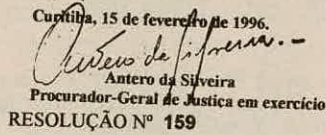 Curitiba, 15 de fevereiro de 1996.
Antero da Silveira
Procurador-Geral de Justiça em exercício
RESOLUÇÃO Nº 159